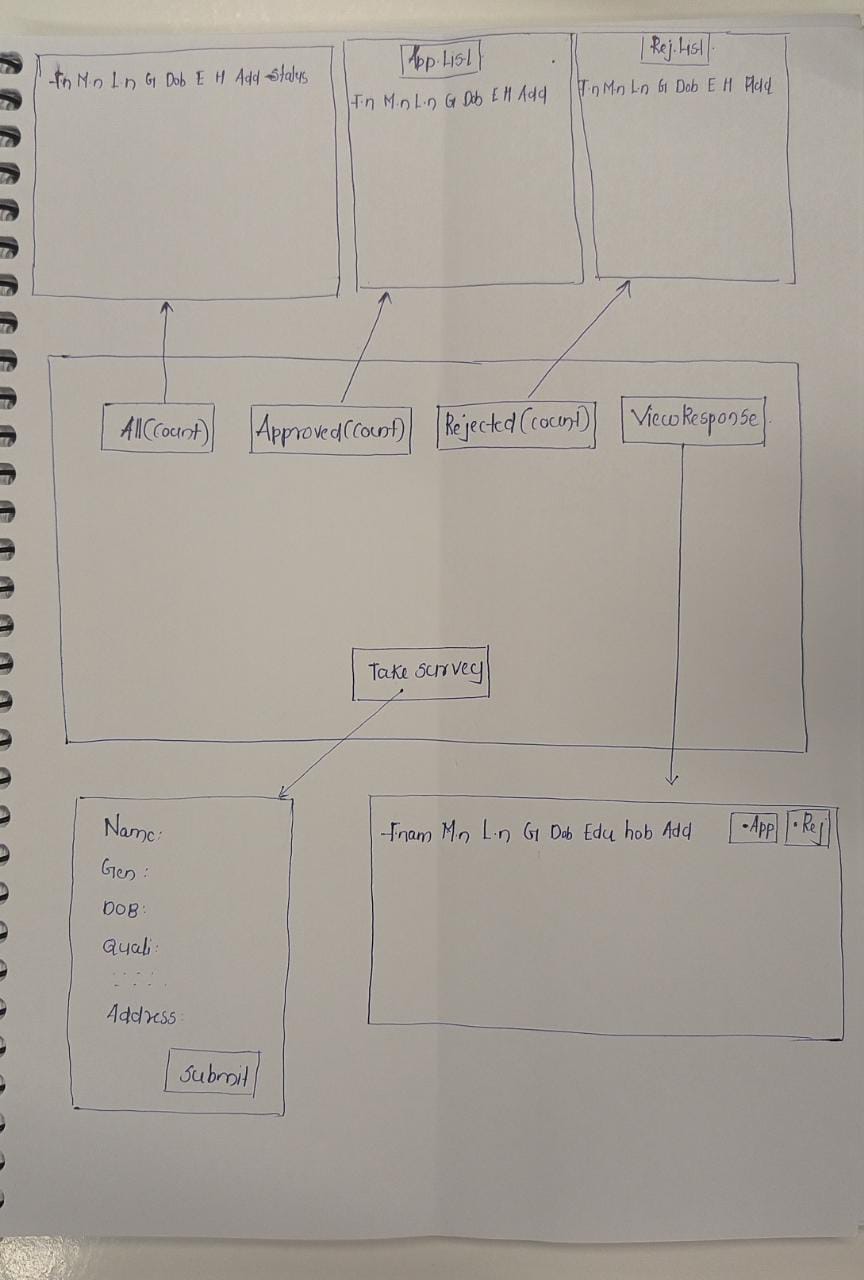 F.n M.n L.n G Dob E H Add Status
App.List
F.n M.n L.n G Dob E H Add
Rej.List
F.n M.n L.n G Dob E H Add
All(count)
Approved(count)
Rejected(count)
ViewResponse
Take survey
Name:
Gen :
DOB:
Quali:
Address:
Submit
Fnam M.n L.n G Dob Edu hob Add
•App
•Rej